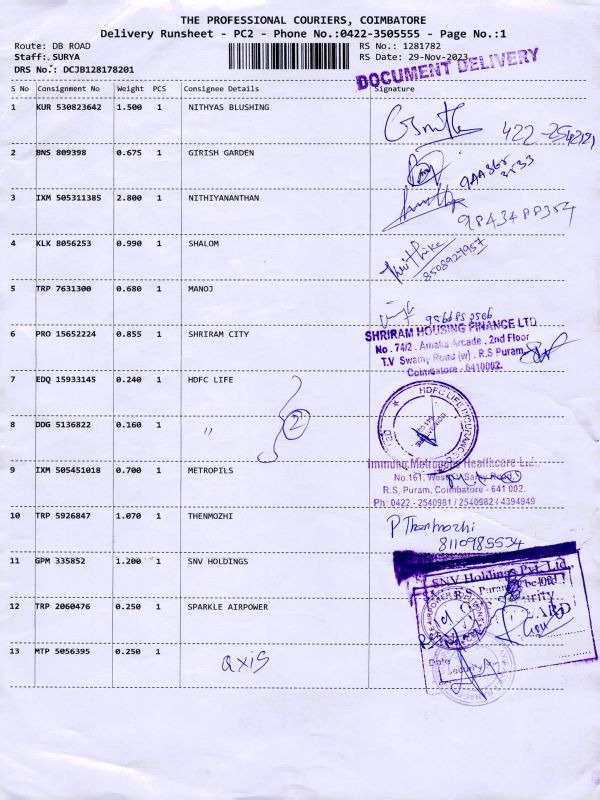 THE PROFESSIONAL COURIERS, COIMBATORE
Delivery Runsheet - PC2 - Phone No.:0422-3505555 - Page No.:1
Route: DB ROAD RS No.: 1281782
Staff: SURYA RS Date: 29-Nov-2023
DRS No.: DCJB128178201
DOCUMENT DELIVERY
S No Consignment No Weight PCS Consignee Details Signature
1 KUR 530823642 1.500 1 NITHYAS BLUSHING
422
2 BNS 809398 0.675 1 GIRISH GARDEN
3 IXM 505311385 2.800 1 NITHIYANANTHAN
4 KLK 8056253 0.990 1 SHALOM
8508927957
5 TRP 7631300 0.680 1 MANOJ
6 PRO 15652224 0.855 1 SHRIRAM CITY
SHRIRAM HOUSING FINANCE LTD
No. 74/2, Amaka Arcade, 2nd Floor
T.V Swamy Road (w), R.S Puram,
Coimbatore - 6410002.
7 EDQ 15933145 0.240 1 HDFC LIFE
HDFC LIFE INSURANCE
2
8 DDG 5136822 0.160 1 "
9 IXM 505451018 0.700 1 METROPILS
Metropolis Healthcare Ltd.
No.161, Road
R.S. Puram, Coimbatore - 641 002.
Ph: 0422 - 2540981 / 2540982 / 4394949
10 TRP 5926847 1.070 1 THENMOZHI
P Thenmozhi
8110985534
11 GPM 335852 1.200 1 SNV HOLDINGS
SNV Holdings Pvt. Ltd.,
R.S. Puram
12 TRP 2060476 0.250 1 SPARKLE AIRPOWER
Security
AIRPOWER
Date
13 MTP 5056395 0.250 1 AXIS